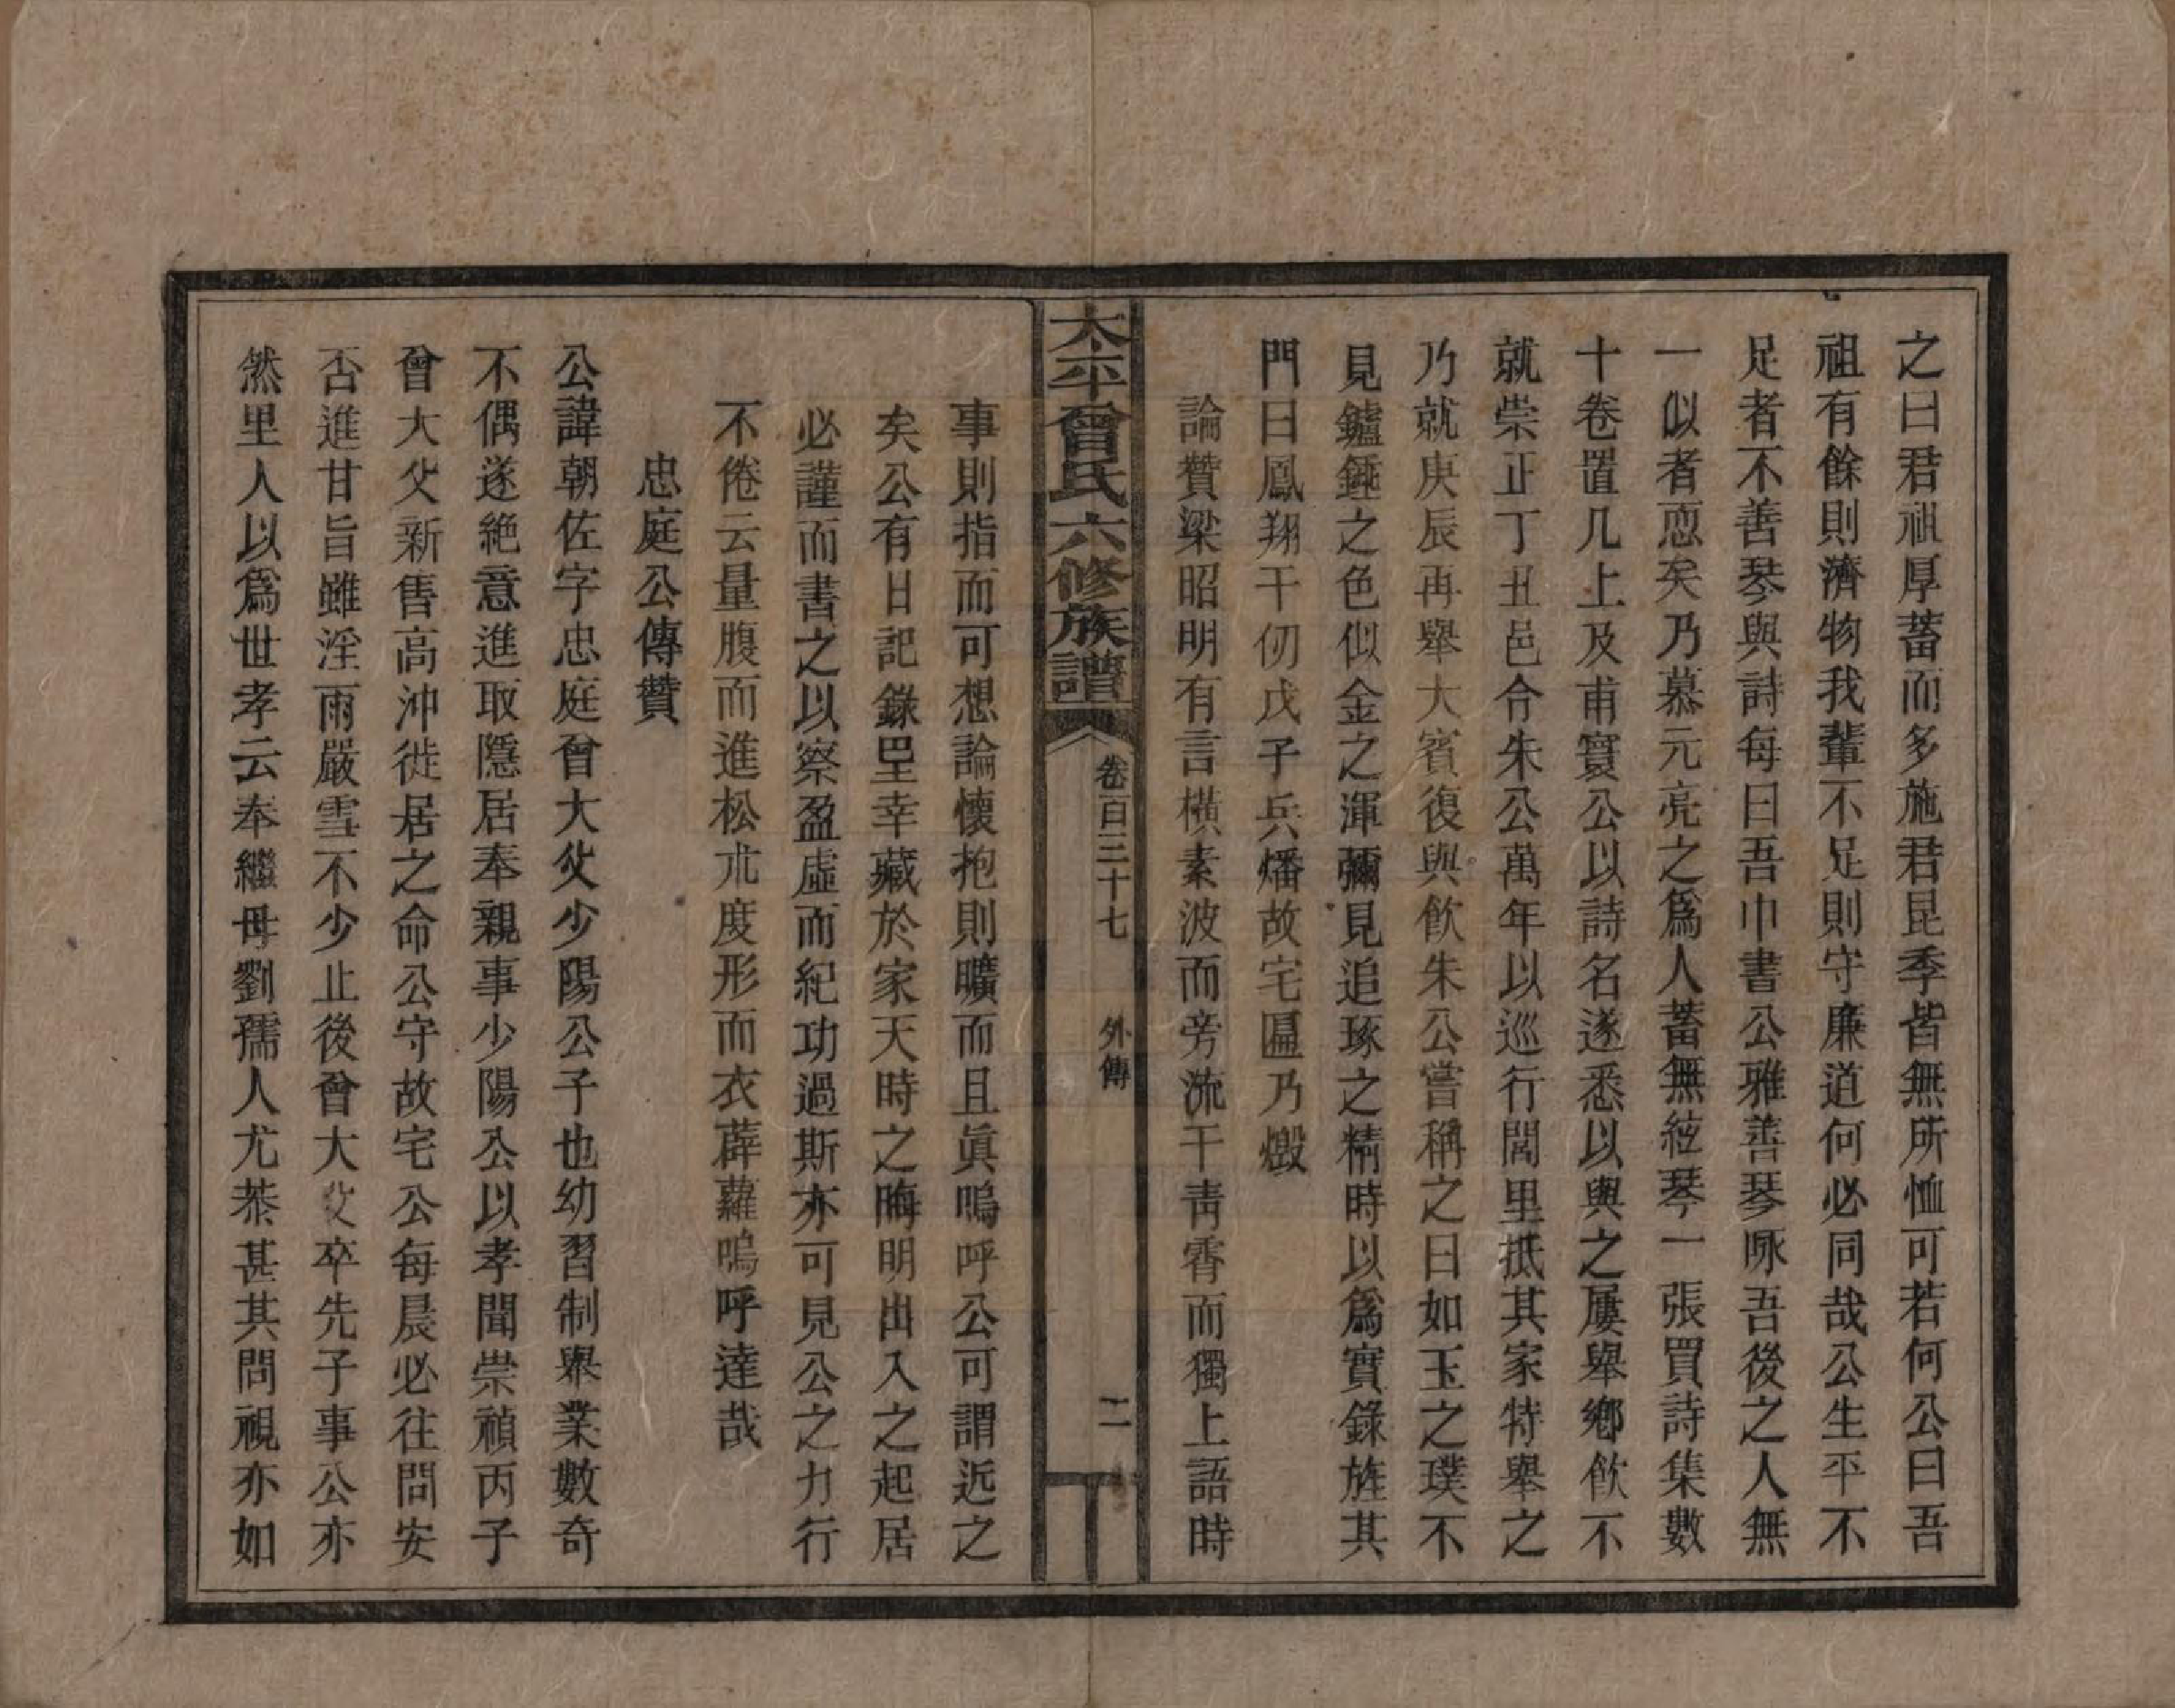 之曰君祖厚蓄而多施君昆季皆無所恤可若何公曰吾
祖有餘則濟物我輩不足則守廉道何必同哉公生平不
足者不善琴與詩每曰吾巾書公雅善琴咏吾後之人無
一似者恧矣乃慕元亮之爲人蓄無絃琴一張買詩集數
十卷置几上及甫寔公以詩名遂悉以與之屢舉鄉飲不
就崇正丁丑邑令朱公萬年以巡行閭里抵其家特舉之
乃就庚辰再舉大賓復與飲朱公嘗稱之曰如玉之璞不
見鑪錘之色似金之渾彌見追琢之精時以爲實錄旌其
門曰鳳翔千仞戊子兵燔故宅匾乃燬
論贊梁昭明有言橫素波而旁流干青霄而獨上語時
太平曾氏六修族譜
卷百三十七
外傳
二
事則指而可想論懷抱則曠而且眞嗚呼公可謂近之
矣公有日記錄皇幸藏於家天時之晦明出入之起居
必謹而書之以察盈虛而紀功過斯亦可見公之力行
不倦云量腹而進松朮度形而衣薜蘿嗚呼達哉
忠庭公傳贊
公諱朝佐字忠庭曾大父少陽公子也幼習制舉業數奇
不偶遂絶意進取隱居奉親事少陽公以孝聞崇禎丙子
曾大父新售高沖徙居之命公守故宅公每晨必往問安
否進甘旨雖淫雨嚴雪不少止後曾大父卒先子事公亦
然里人以爲世孝云奉繼母劉孺人尤恭甚其問視亦如